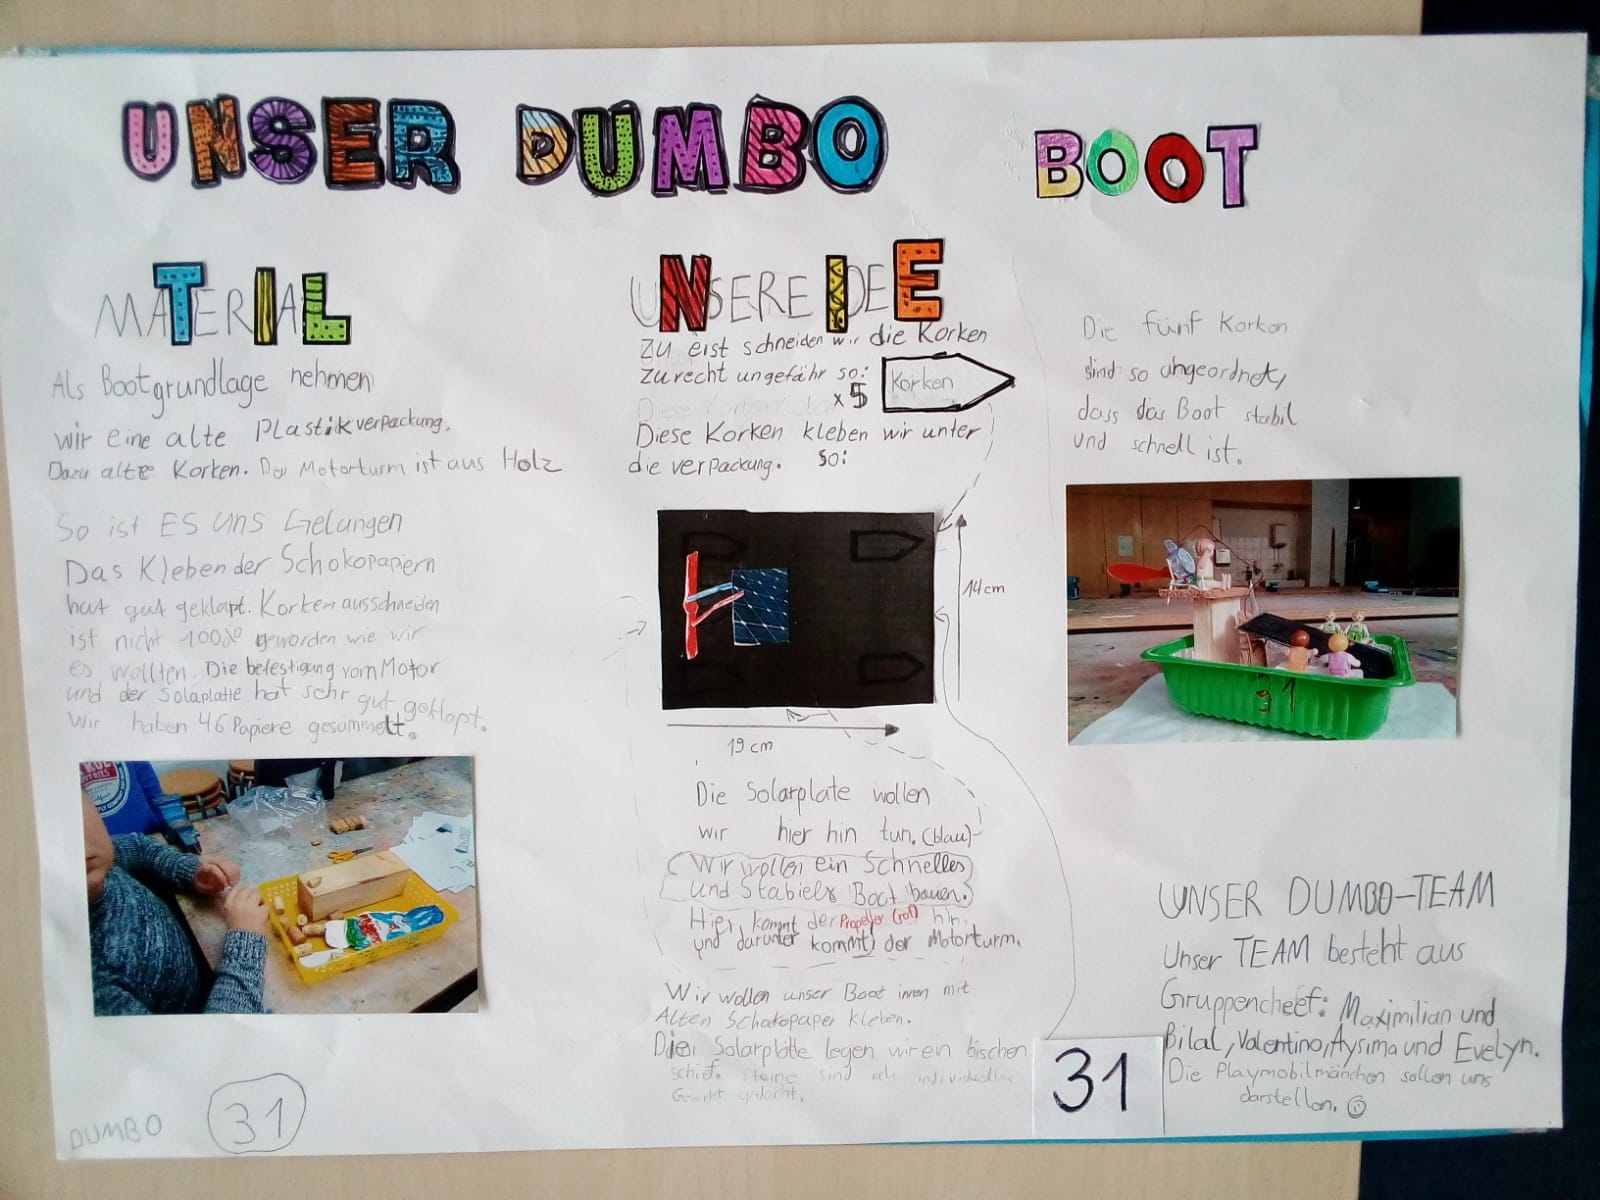 UNSER DUMBO BOOT
MATERIAL
Als Bootgrundlage nehmen
wir eine alte Plastikverpackung.
Dazu alte Korken. Der Motorturm ist aus Holz
So ist ES UNS Gelungen
Das Kleben der Schokopapiern
hat gut geklapt. Korken ausschneiden
ist nicht 100% geworden wie wir
es wollten. Die befestigung vom Motor
und der Solaplatte hat sehr gut geklapt.
Wir haben 46 Papiere gesammelt.
DUMBO 31
UNSERE IDEE
Zu erst schneiden wir die Korken
zurecht ungefähr so:
x 5
Korken
Diese Korken kleben wir unter
die verpackung. So:
14 cm
19 cm
Die Solarplate wollen
wir hier hin tun. (blau)
Wir wollen ein Schnelles
und Stabiels Boot bauen.
Hier kommt der Propeller (rot) hin.
und darunter kommt der Motorturm.
Wir wollen unser Boot innen mit
Alten Schokopaper kleben.
Die Solarplatte legen wir ein bischen
schief. Steine sind als
Gewicht gedacht.
Die fünf Korken
sind so angeordnet,
dass das Boot stabil
und schnell ist.
31
UNSER DUMBO-TEAM
Unser TEAM besteht aus
Gruppencheef: Maximilian und
Bilal, Valentino, Aysima und Evelyn.
Die Playmobilmänchen sollen uns
darstellen.
31